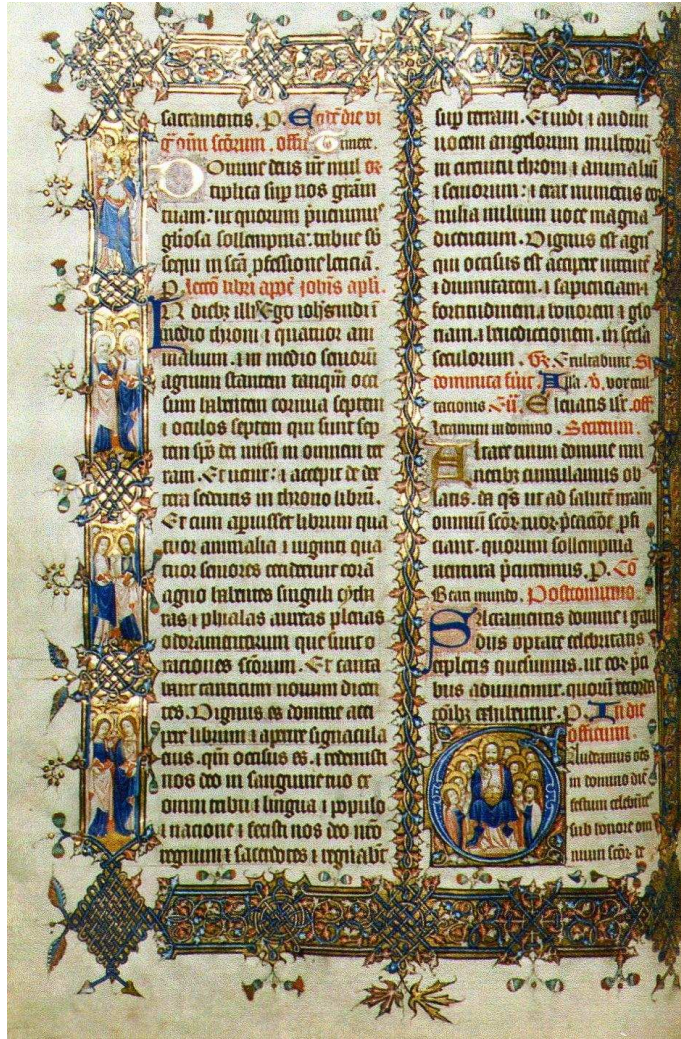 sacramentis. P. Eodē die vi
gł oīm scōrum. offm Timete.
Domine deus nr̄ mul
tiplica sup nos grām
tuam: ut quorum p̄uenimus
gl̄iosa sollempnia: tribue sb̄
sequi in scā p̄fessione leticiā.
P. Lectō libri apoc̄ ioh̄is apli.
In diebꝫ illis Ego ioh̄s uidi ī
medio throni ⁊ quatuor ani
malium. ⁊ in medio seniorū
agnum stantem tanquā occi
sum habentem cornua septem
⁊ oculos septem qui sunt sep
tem sp̄s dei missi in omnem ter
ram. Et uenit: ⁊ accepit de dex
tera sedentis in throno librū.
Et cum apuisset librum qua
tuor animalia ⁊ uiginti qua
tuor seniores ceciderunt corā
agno habentes singuli cytha
ras ⁊ phialas aureas plenas
odoramentorum que sunt o
rationes scōrum. Et canta
bant canticum nouum dicen
tes. Dignus es domine acci
pere librum ⁊ aperire signacula
eius. qm̄ occisus es. ⁊ redemisti
nos deo in sanguine tuo ex
omni tribu ⁊ lingua ⁊ populo
⁊ nacione ⁊ fecisti nos deo nrō
regnum ⁊ sacerdotes ⁊ regnabīt
sup terram. Et uidi ⁊ audiui
uocem angelorum multorū
in circuitu throni ⁊ animaliū
⁊ seniorum: ⁊ erat numerus eoꝝ
milia milium uoce magna
dicencium. Dignus est agn̄
qui occisus est accipere uirtutē
⁊ diuinitatem. ⁊ sapienciam ⁊
fortitudinem ⁊ honorem ⁊ glo
riam ⁊ benedictionem. in secl̄a
seculorum. Gr̄. Exultabunt. Si
communia fuit Alla. V. vox exul
tacionis Eū. Eleuatis ihc. off.
Letamini in domino. Secretum.
Altare tuum domine mu
neribꝫ cumulamus ob
latis. da qs̄ ut ad salutē nr̄am
omniū scōꝝ tuoꝝ p̄catiōe pfi
ciant. quorum sollempnia
uentura p̄currimus. P. Cō
Beati mundo. Postcomunio.
Sacramentis domine ⁊ gau
diis optate celebritatis
expletis quesumus. ut eoꝝ p̄ci
bus adiuuemur. quorū recorda
cōibꝫ exhibentur. P. In die
officium.
Gaudeamus om̄s
in domino diē
festum celebrātes
sub honore om
nium scōꝝ de